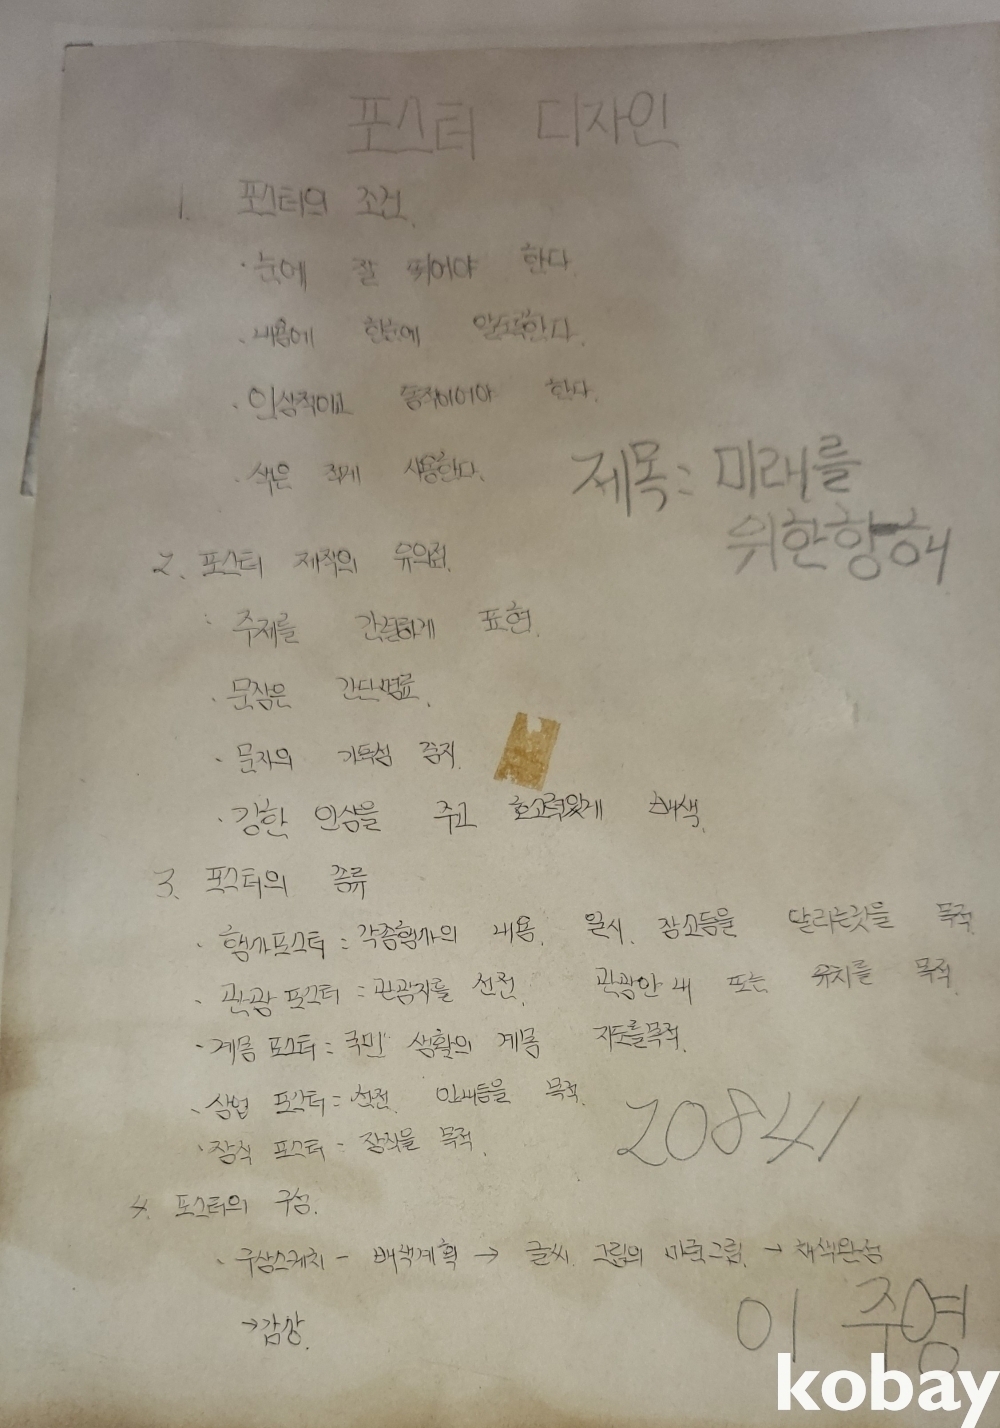 포스터 디자인
1. 포스터의 조건.
· 눈에 잘 띄어야 한다.
· 내용에 한눈에 알도록한다.
· 인상적이고 동적이어야 한다.
· 색은 적게 사용한다.
제목: 미래를
위한항해
2. 포스터 제작의 유의점.
· 주제를 간결하게 표현.
· 문장은 간단명료.
· 문자의 가독성 중지.
· 강한 인상을 주고 호소력있게 배색.
3. 포스터의 종류
· 행사포스터 : 각종행사의 내용. 일시. 장소등을 알리는것을 목적.
· 관광 포스터 : 관광지를 선전. 관광안내 또는 유치를 목적.
· 계몽 포스터 : 국민 생활의 계몽 지도를목적.
· 상업 포스터 : 선전. 안내등을 목적.
· 장식 포스터 - 장식을 목적.
20841
4. 포스터의 구성.
· 구상스케치 - 배색계획 → 글씨. 그림의 그림. → 채색완성
→ 감상.
이 주영
kobay